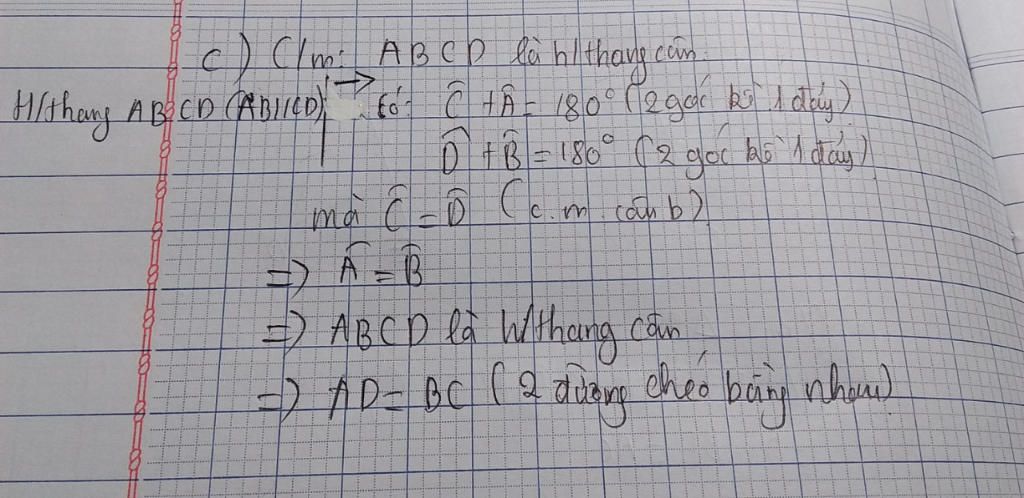 c) C/m: ABCD là h/thang cân.
H/thang ABCD (AB//CD) → có: Ĉ + Â = 180° (2 góc bù 1 đáy)
D̂ + B̂ = 180° (2 góc bù 1 đáy)
mà Ĉ = D̂ (c.m. câu b)
=> Â = B̂
=> ABCD là h/thang cân
=> AD = BC (2 đường chéo bằng nhau)